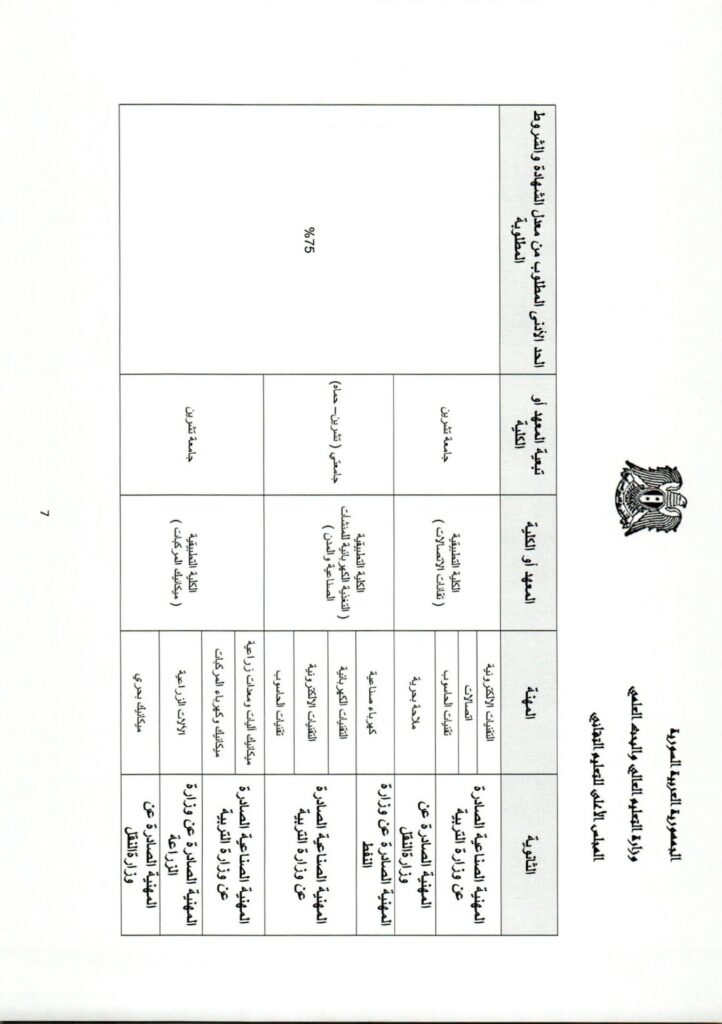 الجمهورية العربية السورية
وزارة التعليم العالي والبحث العلمي
المجلس الأعلى للتعليم التقاني
الثانوية
المهنة
المعهد أو الكلية
تبعية المعهد أو
الكلية
الحد الأدنى المطلوب من معدل الشهادة والشروط
المطلوبة
المهنية الصناعية الصادرة
عن وزارة التربية
التقنيات الالكترونية
اتصالات
تقنيات الحاسوب
المهنية الصادرة عن
وزارة النقل
ملاحة بحرية
الكلية التطبيقية
( تقانات الاتصالات )
جامعة تشرين
المهنية الصادرة عن وزارة
النفط
كهرباء صناعية
المهنية الصناعية الصادرة
عن وزارة التربية
التقنيات الكهربائية
التقنيات الالكترونية
تقنيات الحاسوب
الكلية التطبيقية
( التغذية الكهربائية للمنشآت
الصناعية والمدن )
جامعتي ( تشرين– حماه)
المهنية الصناعية الصادرة
عن وزارة التربية
ميكانيك آليات ومعدات زراعية
ميكانيك وكهرباء المركبات
المهنية الصادرة عن وزارة
الزراعة
الآلات الزراعية
المهنية الصادرة عن
وزارة النقل
ميكانيك بحري
الكلية التطبيقية
( ميكانيك المركبات )
جامعة تشرين
%75
7